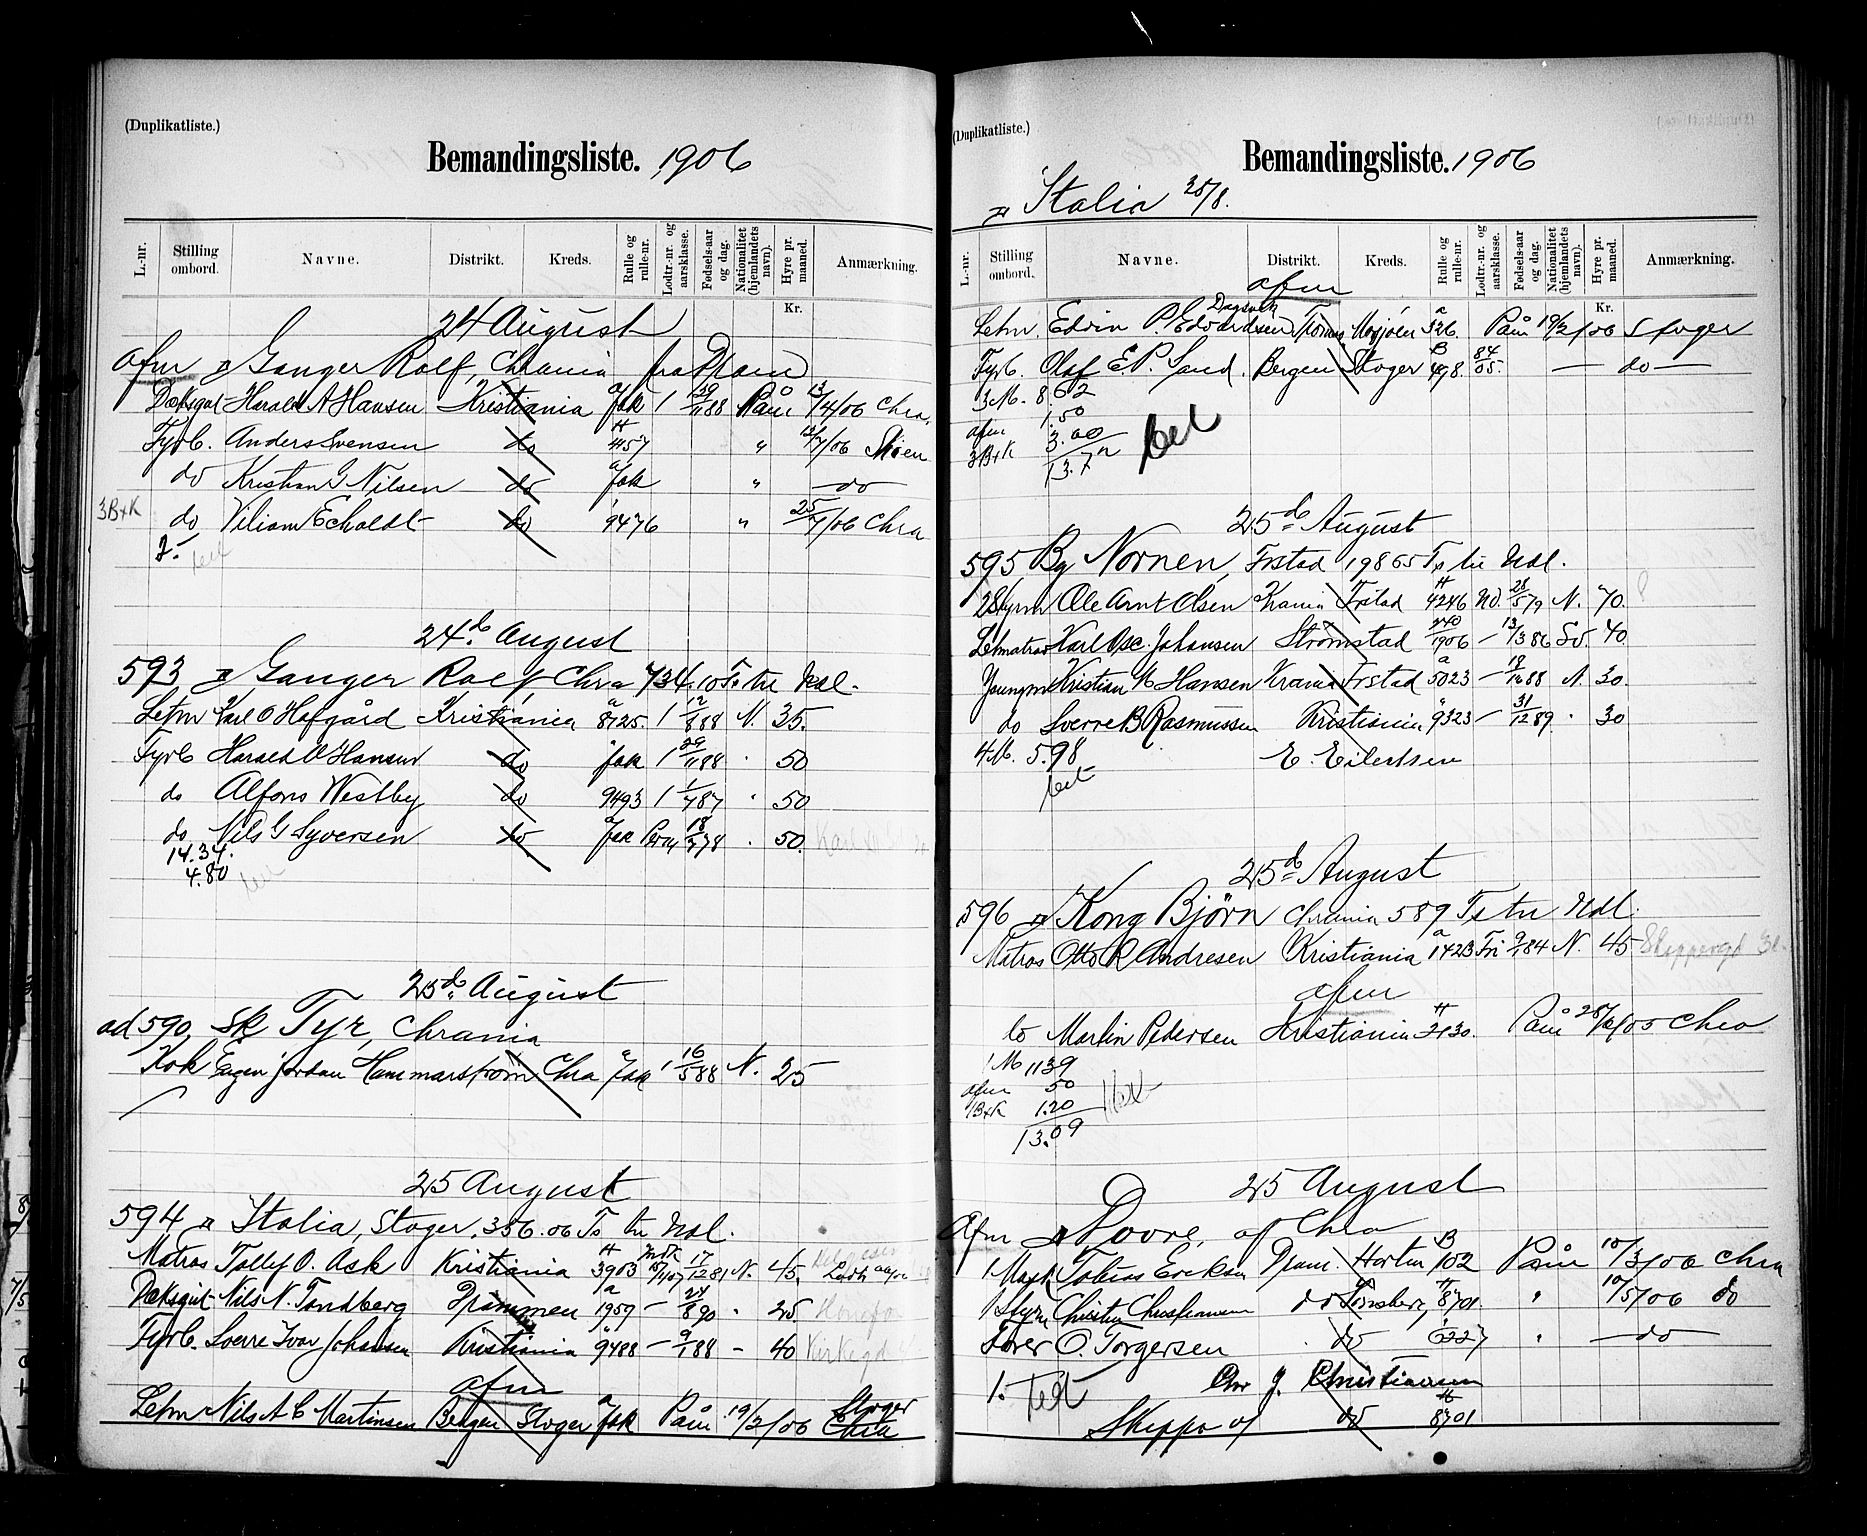 (Duplikatliste.)
Bemandingsliste. 1906
L.-nr. Stilling ombord. Navne. Distrikt. Kreds. Rulle og rulle-nr. Lodtr.-nr. og aarsklasse. Fødsels-aar og dag. Nationalitet (hjemlandets navn). Hyre pr. maaned. Anmærkning.
Kr.
24 August
afm Ganger Rolf, Chrania fra Dram
Dæksgut Harald A Hansen Kristiania fak 1 29/11 88 Påm 13/4/06 Chra.
Fyrb. Anders Svensen do 457 " 12/7/06 Skien
do Kristian G Nilsen do fak " do
3B+K do Viliam Echoldt do 9476 " 25/7/06 Chra
2.-
24de August
593 Ganger Rolf Chra 734.10 Ts tr Udl.
Letm Karl O Hofgård Kristiania 8125 1 12/8 88 N. 35.
Fyrb Harald A Hansen do fak 1 29/11 88 " 50
do Alfons Westby do 9493 1 1/7 87 " 50
do Nils G Syversen do fak 18/7 78 " 50.
14.34.
4.80
25de August
ad 590, Sk Tyr, Chrania
Kok Eugen Jordan Hammarstrøm Chra fak 1 16/5 88 N. 25
25 August
594 Italia, Stvger. 356.06 Ts tr Udl.
Matros Tollef O. Ask Kristiania 3903 17/12 81 N. 45.
Dæksgut Nils N. Tandberg Drammen 1959 – 27/8 90 " 25
Fyrb. Sverre Ivar Johansen Kristiania 9488 – 9/1 88 – 40 Kirkegd
afm
Letm Nils A C Martinsen Bergen Stvger fak Påm 19/2/06 Stvger Chra

(Duplikatliste.)
Bemandingsliste. 1906
Italia 25/8.
L.-nr. Stilling ombord. Navne. Distrikt. Kreds. Rulle og rulle-nr. Lodtr.-nr. og aarsklasse. Fødsels-aar og dag. Nationalitet (hjemlandets navn). Hyre pr. maaned. Anmærkning.
Kr.
afm
Letm. Edvin P. Edvardsen Dagsvik Mosjøen 326. Påm 19/2/06 Stvger
Fyrb. Olaf E. P. Sand. Bergen Stvger 498. 84/05. — do —
3M. 8.62
1.50
afm 3.60
3B+K 13.72
bet
25de August
595, Bg Nornen, Frstad 198 65 Ts tr Udl.
2Styrm Ole Arnt Olsen Krania Frstad 4246 Ud. 28/5 79 N. 70.
Letmatros Karl Osc. Johansen Strømstad 1906 – 13/3 86 Sv. 40.
Youngm Kristian M Hansen Krania Frstad 5023 – 88 N. 30.
do Sverre B Rasmussen Kristiania 9323 – 31/12 89. " 30
4M. 5.98 E. Eilertsen
bet
25de August
596 Kong Bjørn Chrania 589 Ts tr Udl.
Matros Otto R Andresen Kristiania 1423 Fri 9/1 84 N. 45 Skippergd
afm
do Martin Pedersen Kristiania 3130. Påm 28/2/05 Chra
1 M 11.39
afm 50
1B+K 1.20
13.09
bet
25 August
Afm Dovre, af Chra
1 Mask Tobias Eriksen Dram. Horten 102 Påm 10/3/06 Chra
1 Styrm Christian Christiansen do Tønsberg 8701. " 10/5/06 do
Fører O. Torgersen do 6227 " — do —
1. bet Chr J. Christiansen
Skipper af do 8701